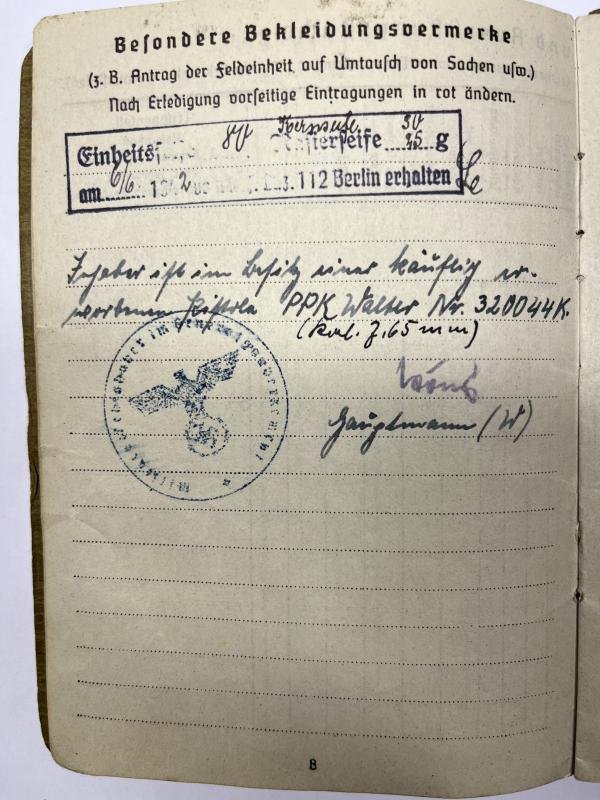 Besondere Bekleidungsvermerke
(z. B. Antrag der Feldeinheit auf Umtausch von Sachen usw.)
Nach Erledigung vorseitige Eintragungen in rot ändern.
Kernseife 50
Einheitsseife 80 Rasierseife 35 g
am 6/6 1942 112 Berlin erhalten
Inhaber ist im Besitz einer käuflich er-
worbenen Pistole PPK Walter Nr. 320044K.
(Kal. 7.65 mm)
Hauptmann (W)
Militärbefehlshaber im Generalgouvernement
8